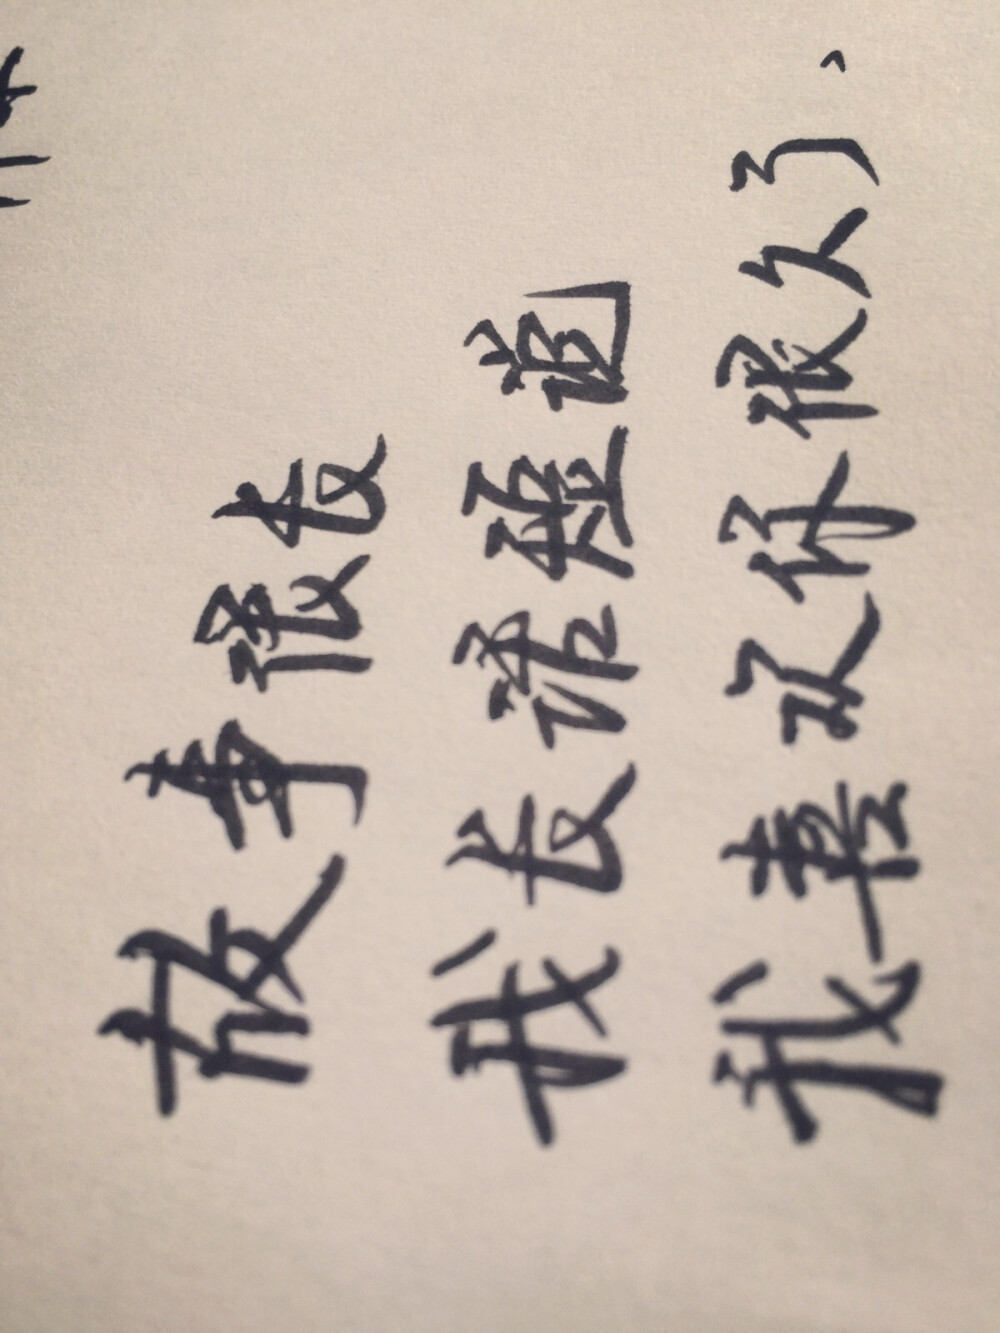 故事很长
我长话短说
我喜欢你很久了、